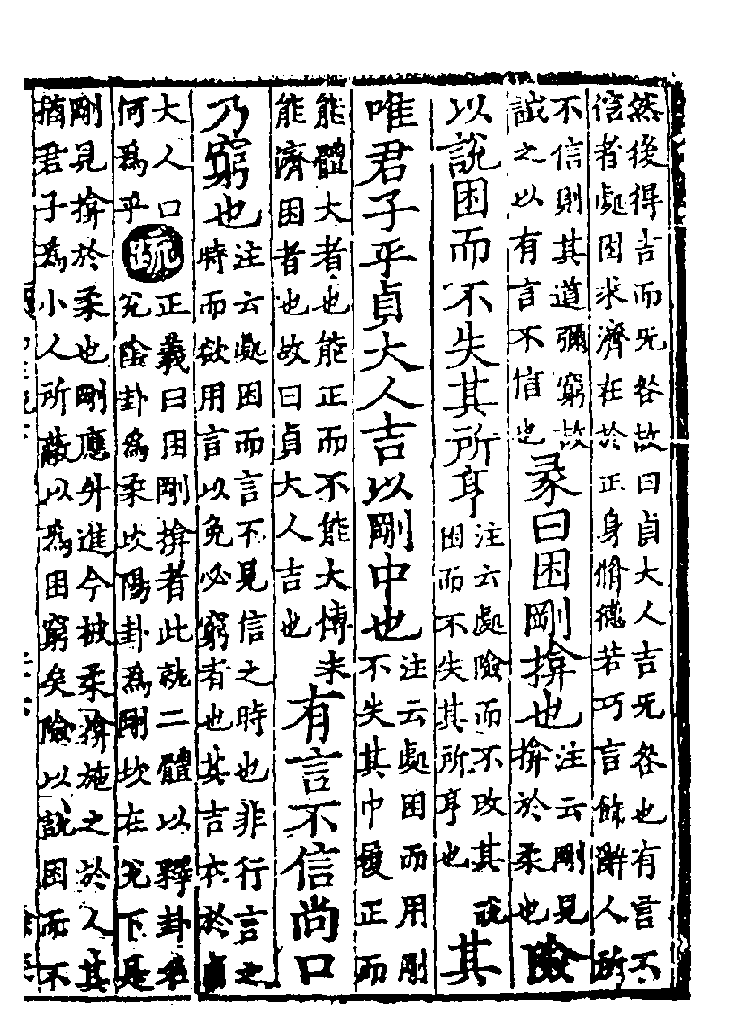 然後得吉而无咎故曰貞大人吉无咎也有言不
信者處困求濟在於正身脩德若巧言餙辭人所
不信則其道彌窮故
誡之以有言不信也
彖曰困剛揜也
注云剛見
揜於柔也
險
以說困而不失其所亨
注云處險而不改其說
困而不失其所亨也
其
唯君子乎貞大人吉以剛中也
注云處困而用剛
不失其中履正而
能體大者也能正而不能大博未
能濟困者也故曰貞大人吉也
有言不信尚口
乃窮也
注云處困而言不見信之時也非行言之
時而欲用言以免必窮者也其吉在於貞
大人口
何爲乎
疏
正義曰困剛揜者此就二體以釋卦名
兌陰卦爲柔坎陽卦爲剛坎在兌下是
剛見揜於柔也剛應升進今被柔揜施之於人其
猶君子爲小人所蔽以爲困窮矣險以說困而不